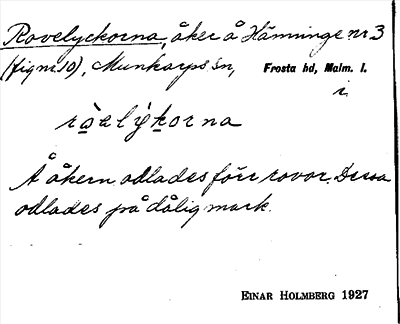 Rovelyckorna, åker å Hämninge nr 3
(fig nr 10), Munkarps sn, Frosta hd, Malm. l.
i
Å åkern odlades förr rovor. Dessa
odlades på dålig mark.
EINAR HOLMBERG 1927